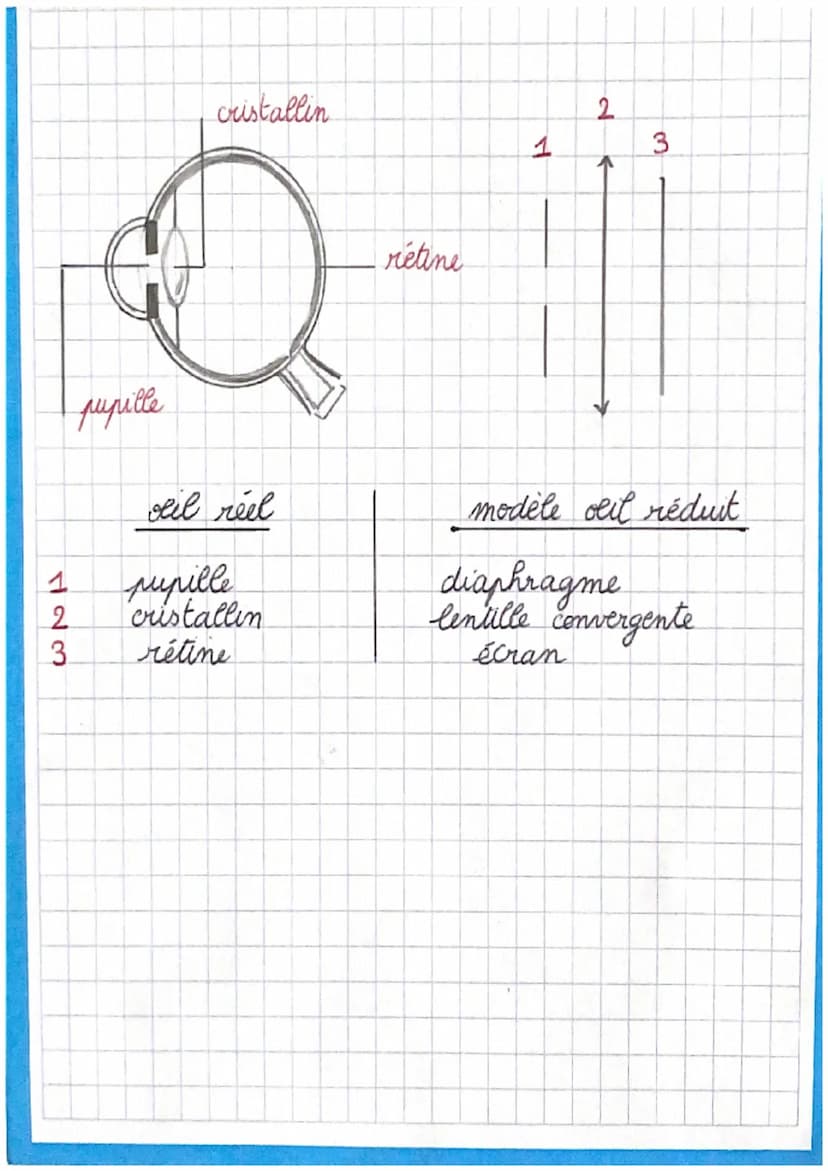 cristallin
2
1
3
rétine
pupille
œil réel
modèle œil réduit
1 pupille diaphragme
2 cristallin lentille convergente
3 rétine écran